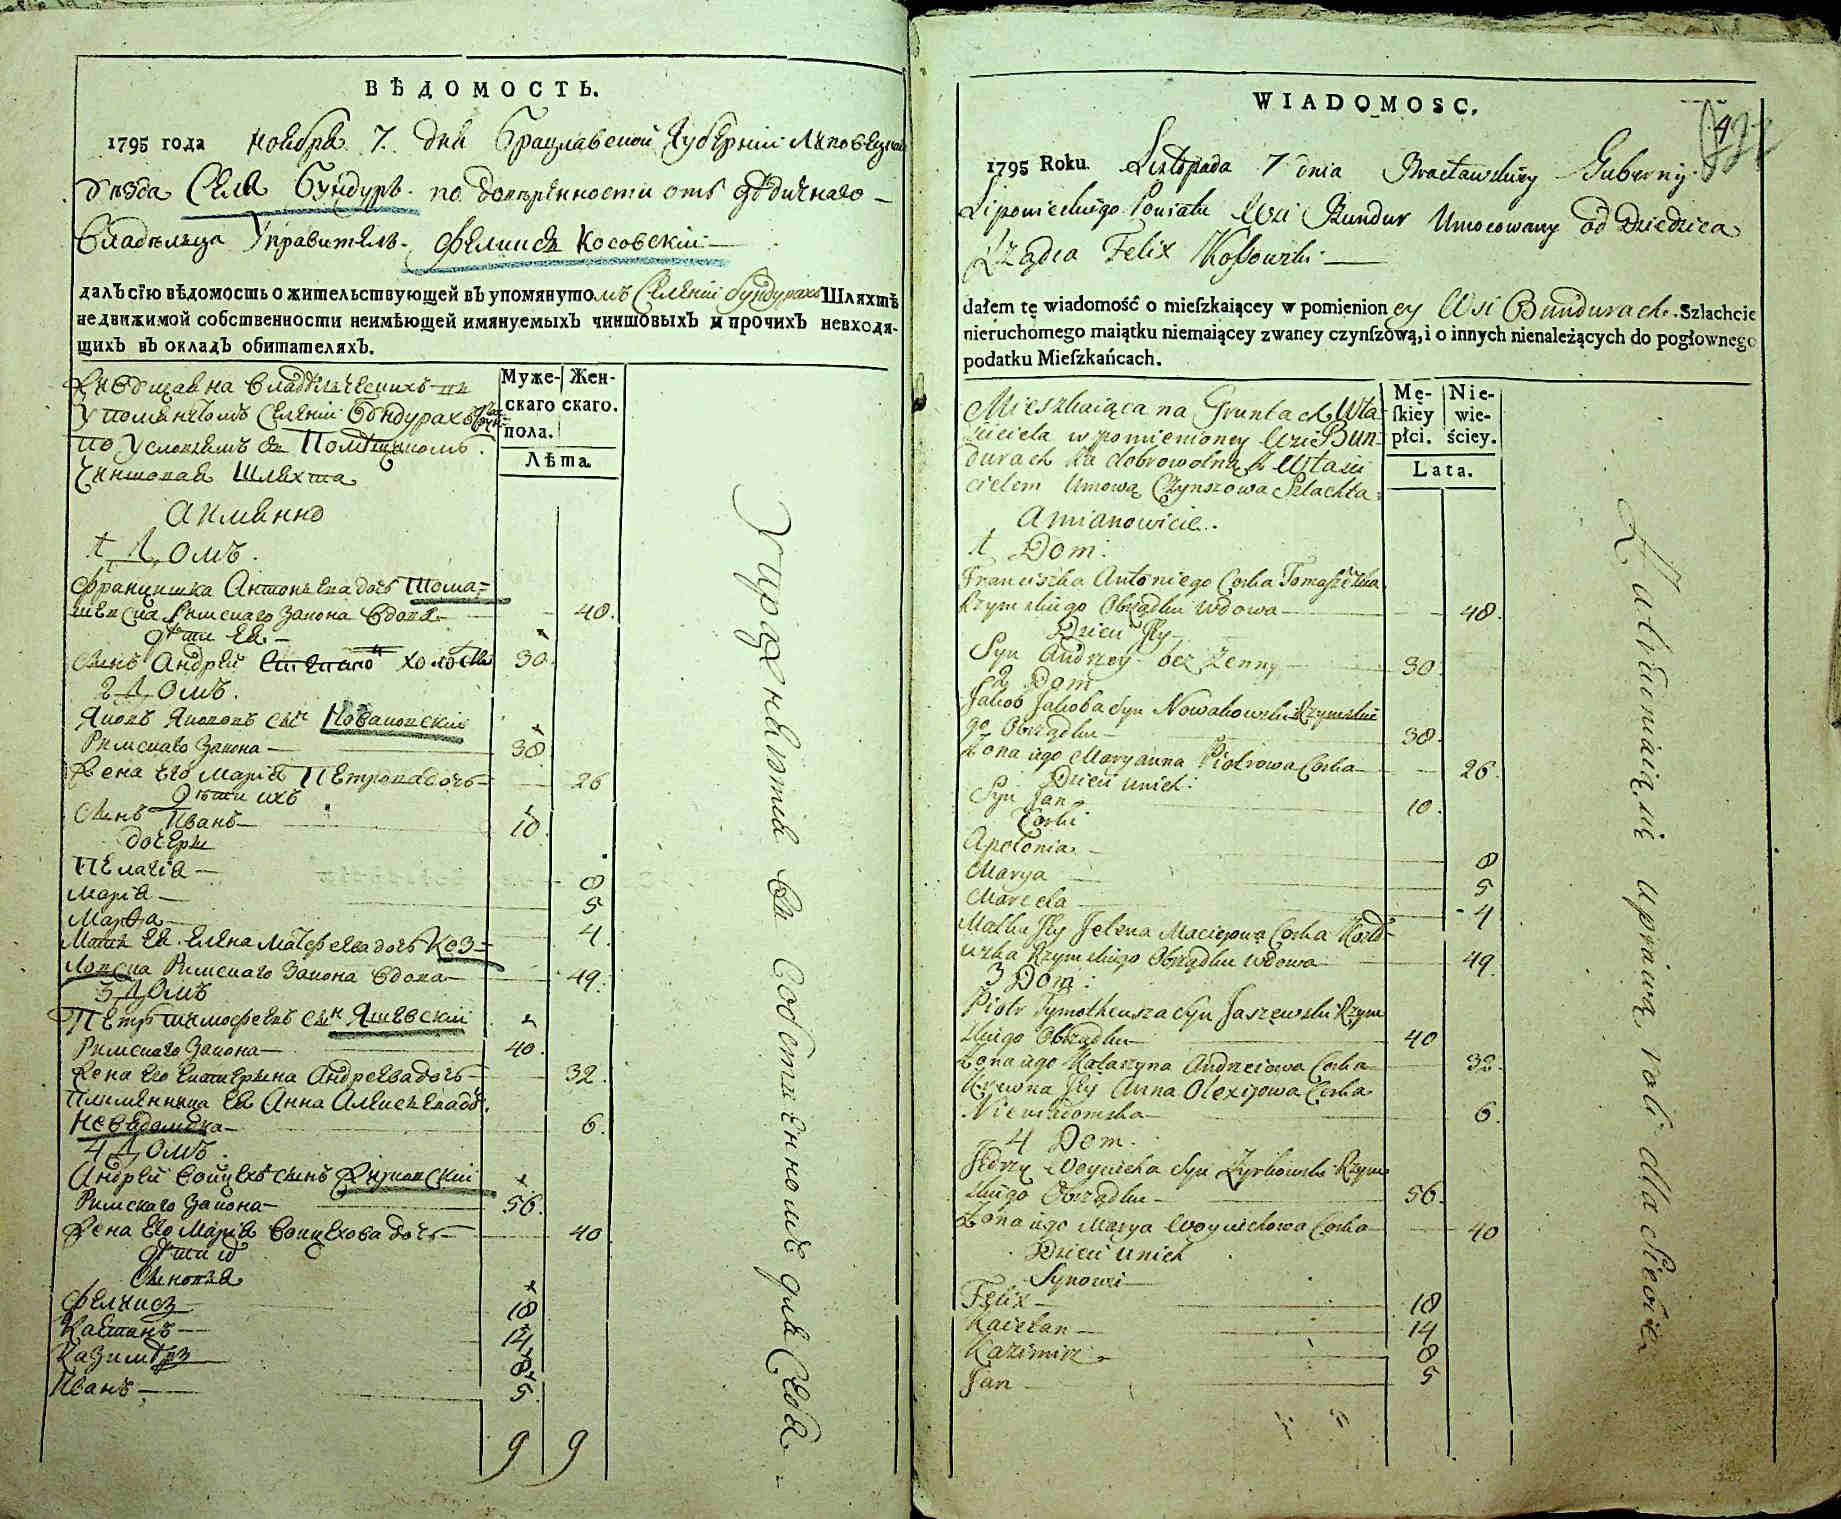 ВѢДОМОСТЬ.
1795 года Ноября 7. дня Брацлавской Губерніи Липовецкой
Села Бундуръ. по довѣренности отъ дѣдичнаго
Владѣльца Управитель. Феликсъ Косовскій
далъ сїю вѣдомость о жительствующей въ упомянутомъ Селеніи Бундурахъ Шляхтѣ
недвижимой собственности неимѣющей имянуемыхъ чиншовыхъ и прочихъ невходя-
щихъ въ окладъ обитателяхъ.
на владѣльческихъ
Упомянутомъ Селеніи Бундурахъ
по условіямъ
Чиншовая Шляхта
Муже- Жен-
скаго скаго.
пола.
Лѣта.
а именно
1 Домъ.
Францишка Антоньева дочь Тома-
шевска Римскаго Закона вдова 48.
Дѣти Ея
Сынъ Андрей холостъ 30.
2 Домъ.
Яковъ Яковъ сынъ Новаковскій
Римскаго Закона 38.
Жена Его Марія Петрова дочь 26
Дѣти ихъ
Сынъ Иванъ 10.
дочери
Пелагія 8
Марія 5
Марфа 4.
Матка Ея Елена Матфеева дочь Коз-
ловска Римскаго Закона вдова 49.
3 Домъ
Петръ Тимофеевъ сынъ Яшевскій
Римскаго Закона 40.
Жена Его Екатерина Андреева дочь 32.
Племянница Ея Анна Алексеева дочь
Невядомска 6.
4 Домъ.
Андрей Войцехъ сынъ Жирковскій
Римскаго Закона 56.
Жена Его Марія Войцехова дочь 40
Дѣти
Сыновья
Феликсъ 18
Каетанъ 14
Казимиръ 8
Иванъ 5
9 9
Упражняются въ Собственномъ для Себя
WIADOMOSC.
4
1795 Roku. Listopada 7 dnia Bracławskiey Gubernij
Lipowieckiego Powiatu Wsi Bundur Umocowany od Dziedzica
Rządca Felix Kossowski
dałem tę wiadomość o mieſzkaiącey w pomienioney Wsi Bundurach. Szlachcie
nieruchomego maiątku niemaiącey zwaney czynſzową, i o innych nienależących do pogłownego
podatku Mieſzkańcach.
Mieszkaiąca na Gruntach Wła-
ściciela w pomienioney Wsi Bun-
durach za dobrowolną z Właści
cielem Umową Czynszowa Szlachta
Mę- Nie-
ſkiey wie-
płci. ściey.
Lata.
a mianowicie.
1 Dom.
Franciszka Antoniego Corka Tomaszewska
Rzymskiego Obrządku wdowa 48.
Dzieci Jey
Syn Andrzey bez Zenny 30.
2 Dom
Jakob Jakoba Syn Nowakowski Rzymskie
go Obrządku 38.
Zona iego Maryanna Piotrowa Corka 26.
Dzieci unich:
Syn Jan 10.
Corki
Apolonia 8
Marya 5
Marcela 4
Matka Jey Jelena Macieyowa Corka Kozło
wska Rzymskiego Obrządku wdowa 49.
3 Dom:
Piotr Tymotheusza Syn Jaszewski Rzym
skiego Obrządku 40
Zona iego Katarzyna Andrzeiowa Corka 32.
Krewna Jey Anna Olexijowa Corka
Niewiadomska 6.
4 Dom.
Jędrzy Woyciecha Syn Zyrkowski Rzym
skiego Obrządku 56.
Zona iego Marya Woyciechowa Corka 40
Dzieci unich
Synowi
Felix 18
Kaietan 14
Kazimirz 8
Jan 5
Zatrudniaią się uprawą roli dla siebie